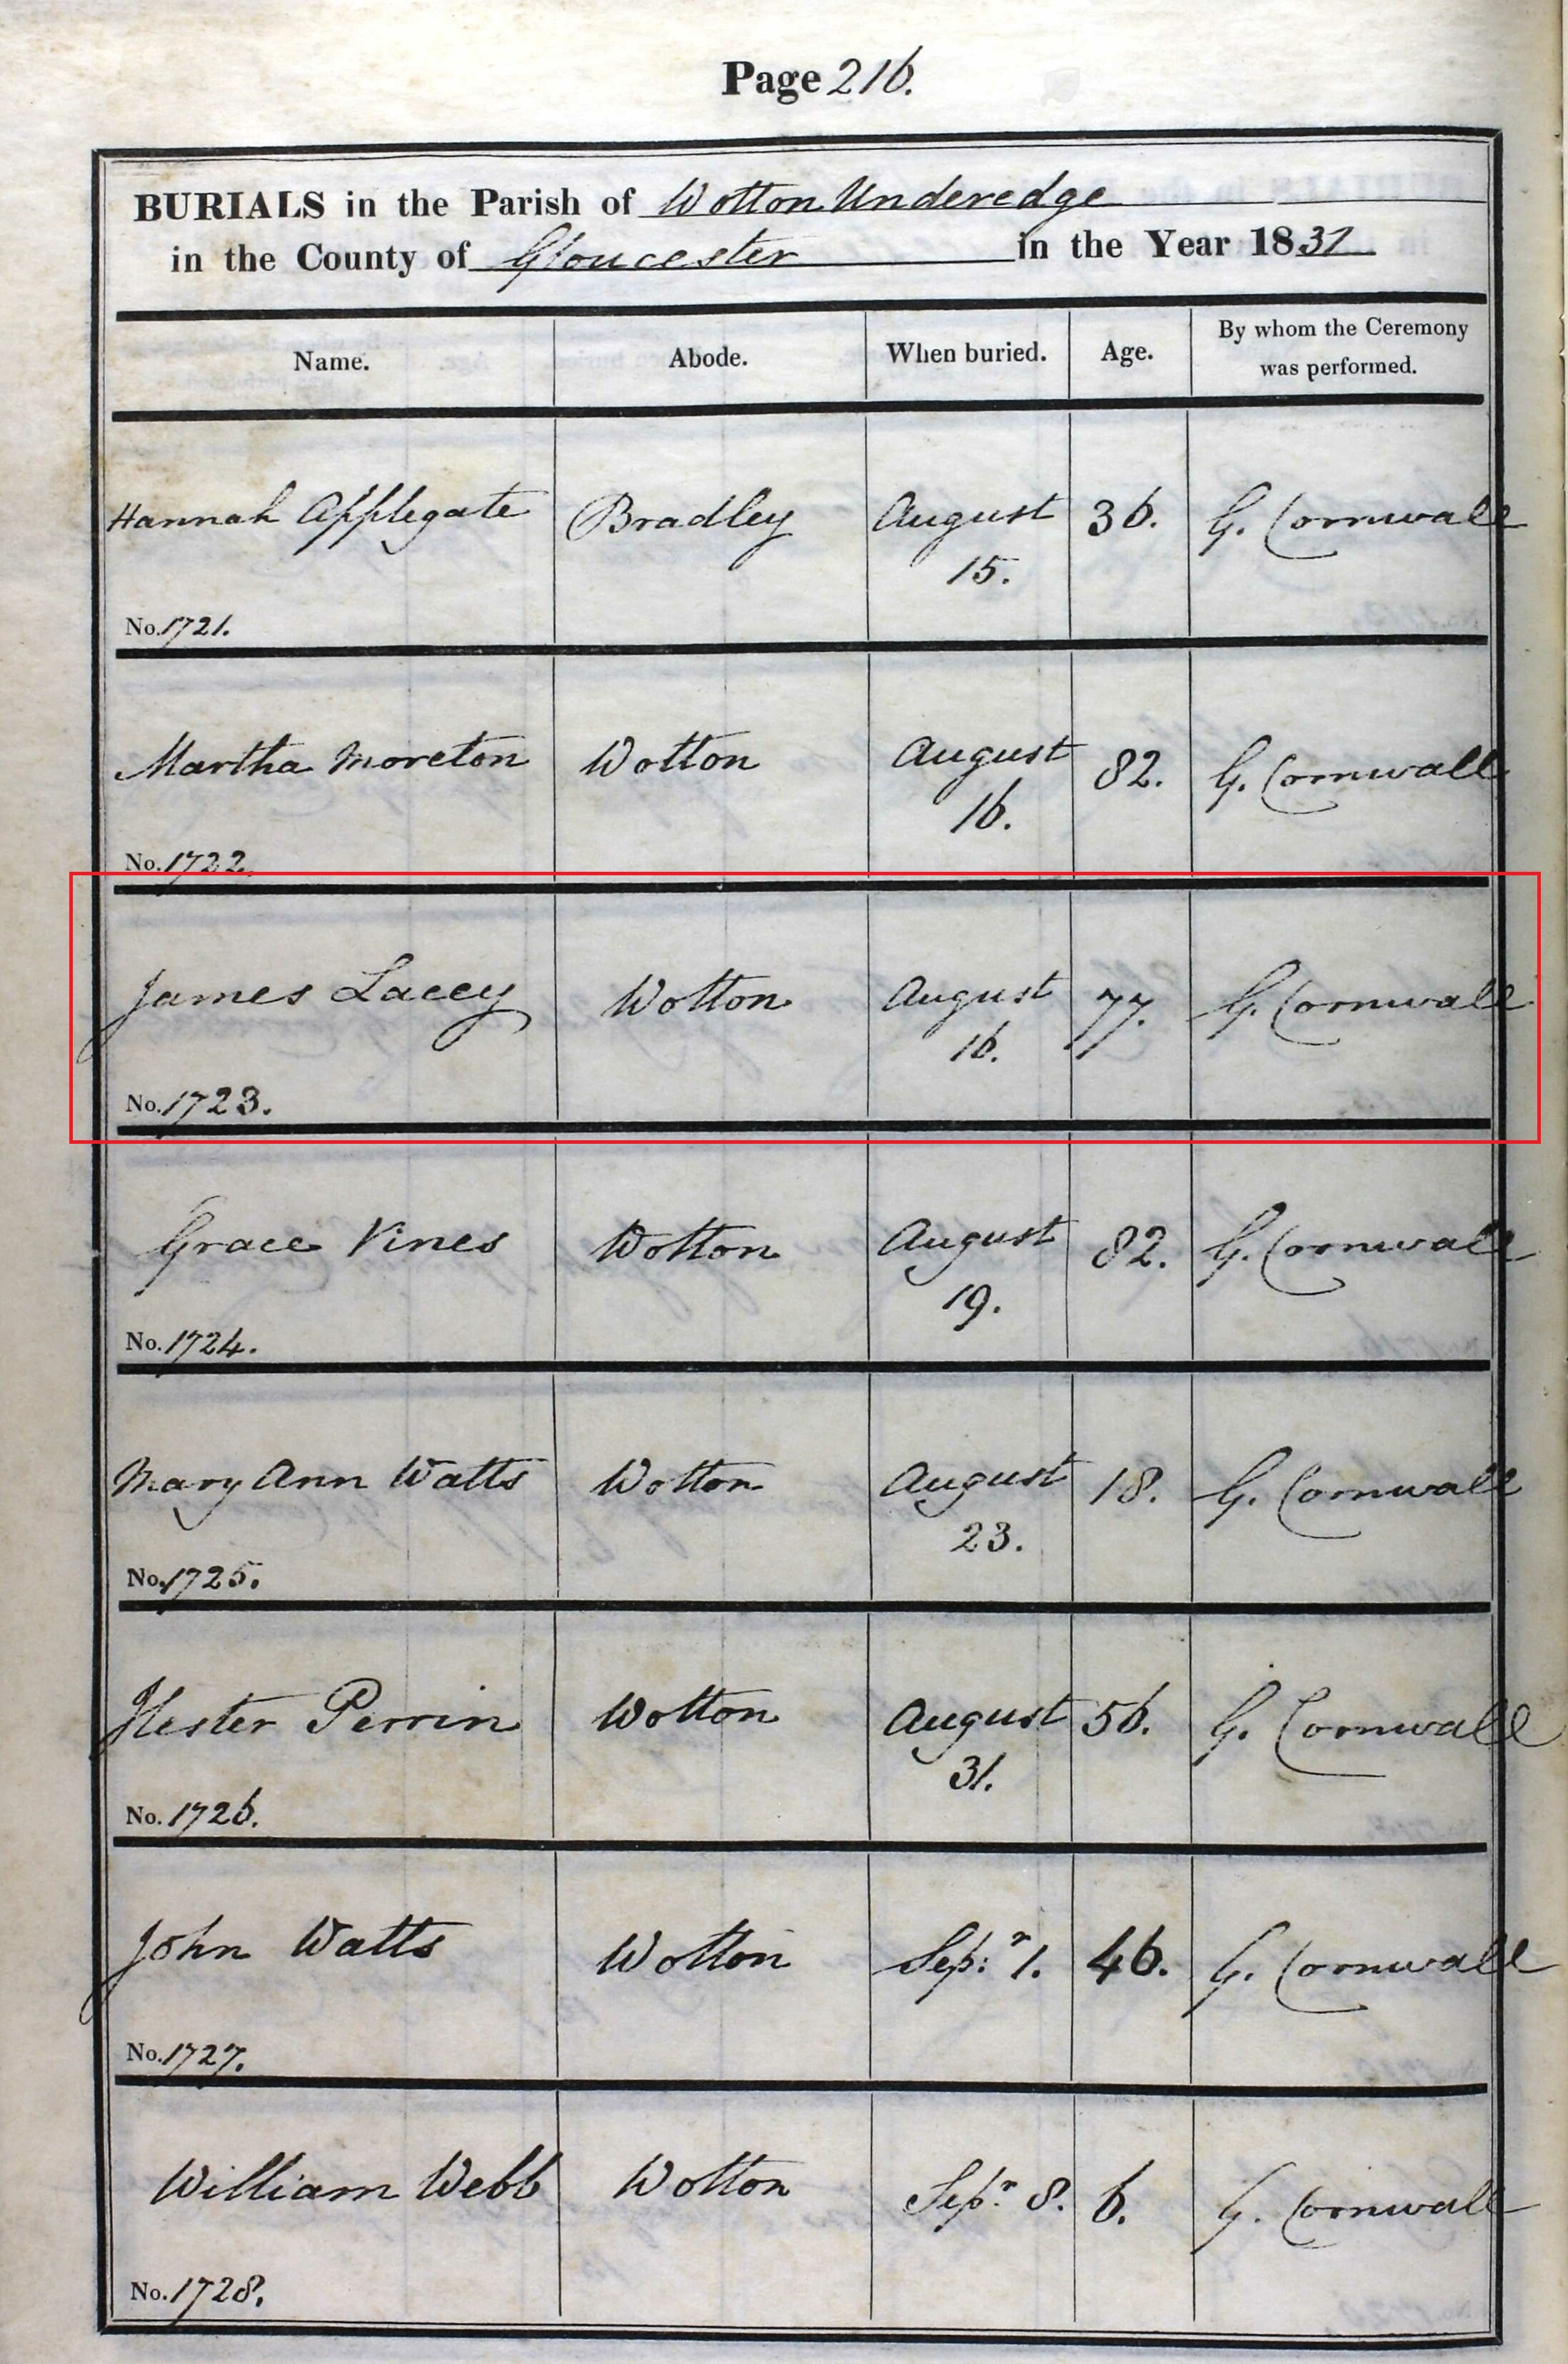 Page 216.
BURIALS in the Parish of Wotton Underedge
in the County of Gloucester in the Year 1831
Name. Abode. When buried. Age. By whom the Ceremony was performed.
Hannah Applegate Bradley August 15. 36. G. Cornwall
No. 1721.
Martha Moreton Wotton August 16. 82. G. Cornwall
No. 1722.
James Lacey Wotton August 16. 77. G. Cornwall
No. 1723.
Grace Vines Wotton August 19. 82. G. Cornwall
No. 1724.
Mary Ann Watts Wotton August 23. 18. G. Cornwall
No. 1725.
Hester Perrin Wotton August 31. 56. G. Cornwall
No. 1726.
John Watts Wotton Sep:r 1. 46. G. Cornwall
No. 1727.
William Webb Wotton Sep:r 8. 6. G. Cornwall
No. 1728.